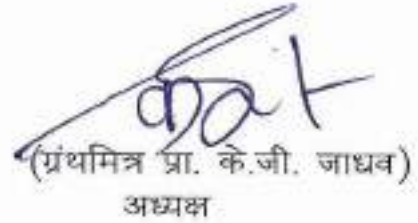 (ग्रंथमित्र प्रा. के.जी. जाधव)
अध्यक्ष